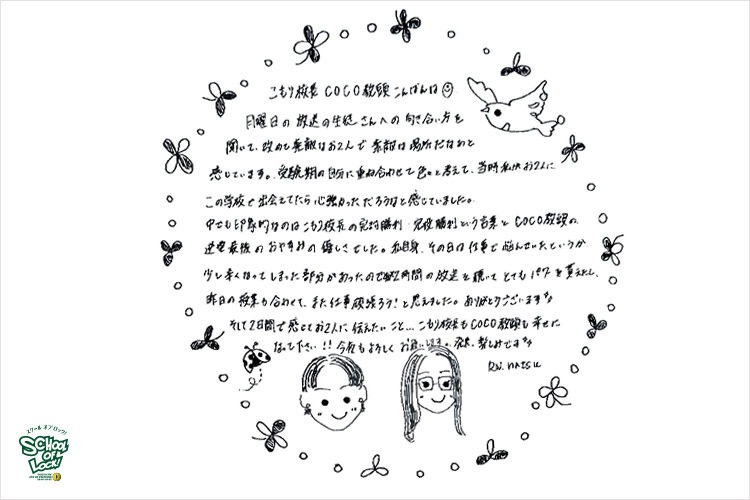 こもり校長 COCO教頭 こんばんは
月曜日の放送の生徒さんへの向き合い方を
聞いて、改めて素敵なお2人で素敵な場所だなぁと
感じています。受験期の自分に重ね合わせて色々と考えて、当時私はお2人に
この学校で出会えてたら心強かっただろうなと感じていました。
中でも印象的なのはこもり校長の完封勝利・完投勝利という言葉とCOCO教頭の
逆電最後のおやすみの優しさでした。私自身、その日は仕事で悩んでいたというか
少し辛くなってしまった部分があったので 時間の放送を聴いてとてもパワーを貰えたし、
昨日の授業も合わせて、また仕事頑張ろう!と思えました。ありがとうございます
そして2日間で感じてお2人に伝えたいこと… こもり校長もCOCO教頭も幸せに
なって下さい!!今夜もよろしくお願いします。 楽しみです
RN.
スクール オブ ロック!
SCHOOL
OF
LOCK!